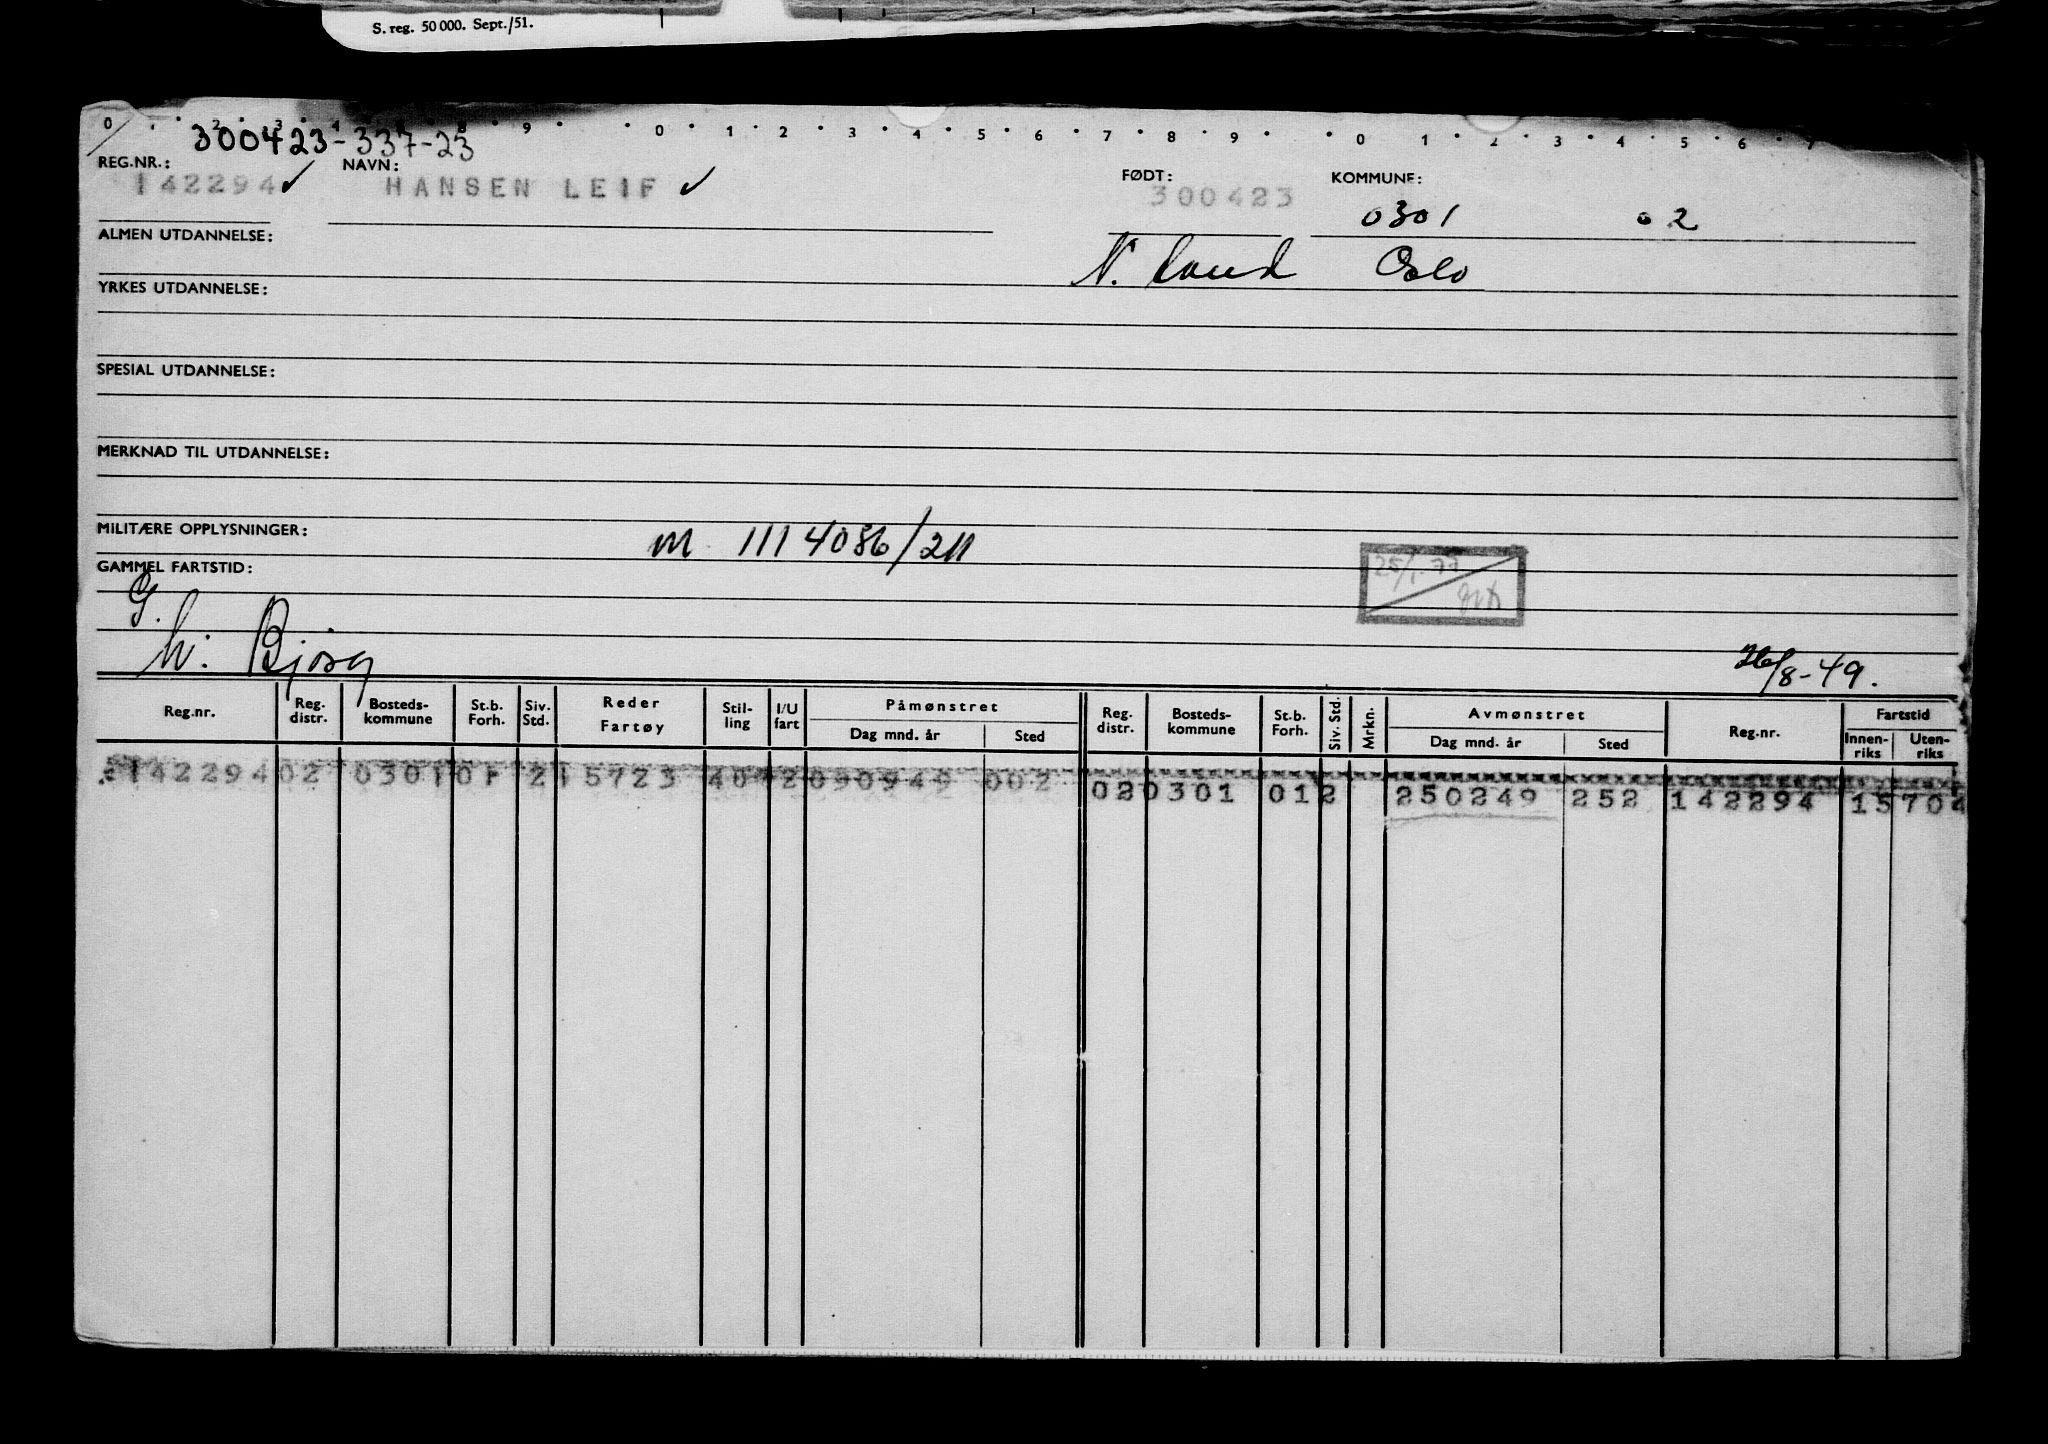 S. reg. 50 000. Sept./51.
0 2 3 4 8 9 0 1 2 3 4 5 6 7 8 9 0 1 2 3 4 5 6 7
300423-337-23
REG.NR.: NAVN: FØDT: KOMMUNE:
142294 ✓ HANSEN LEIF ✓ 300423 0301 02
ALMEN UTDANNELSE: N. land Oslo
YRKES UTDANNELSE:
SPESIAL UTDANNELSE:
MERKNAD TIL UTDANNELSE:
MILITÆRE OPPLYSNINGER: m 1114086/211
GAMMEL FARTSTID: 25/1.77
G.
h: Bjørg 26/8-49.
Reg.nr. Reg. distr. Bosteds-kommune St.b. Forh. Siv. Std. Reder Fartøy Stil-ling I/U fart Påmønstret Dag mnd. år Sted Reg. distr. Bosteds-kommune St.b. Forh. Siv. Std. Mrkn. Avmønstret Dag mnd. år Sted Reg.nr. Fartstid Innen-riks Uten-riks
142294 02 0301 2 15723 40 2 090949 002 02 0301 01 2 250249 252 142294 15 704